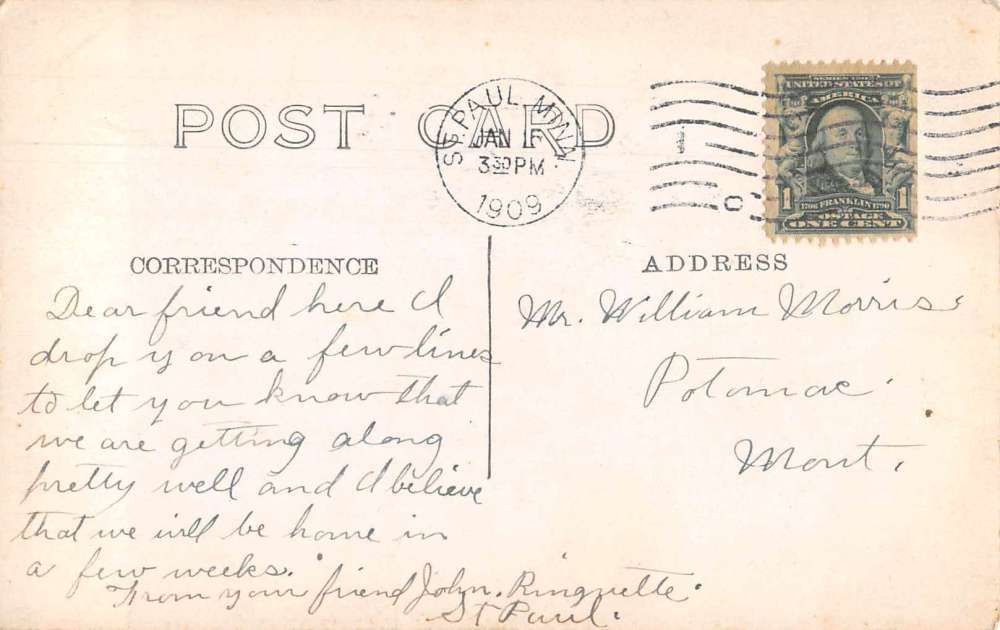 POST CARD
ST. PAUL, MINN.
JAN
3 30 PM
1909
SERIES 1902
UNITED STATES OF
AMERICA
1 1
1706 FRANKLIN 1790
POSTAGE
ONE CENT
CORRESPONDENCE
Dear friend here I
drop you a few lines
to let you know that
we are getting along
pretty well and I believe
that we will be home in
a few weeks.
From your friend John. Ringuette.
St Paul.
ADDRESS
Mr. William Morris.
Potomac.
Mont.